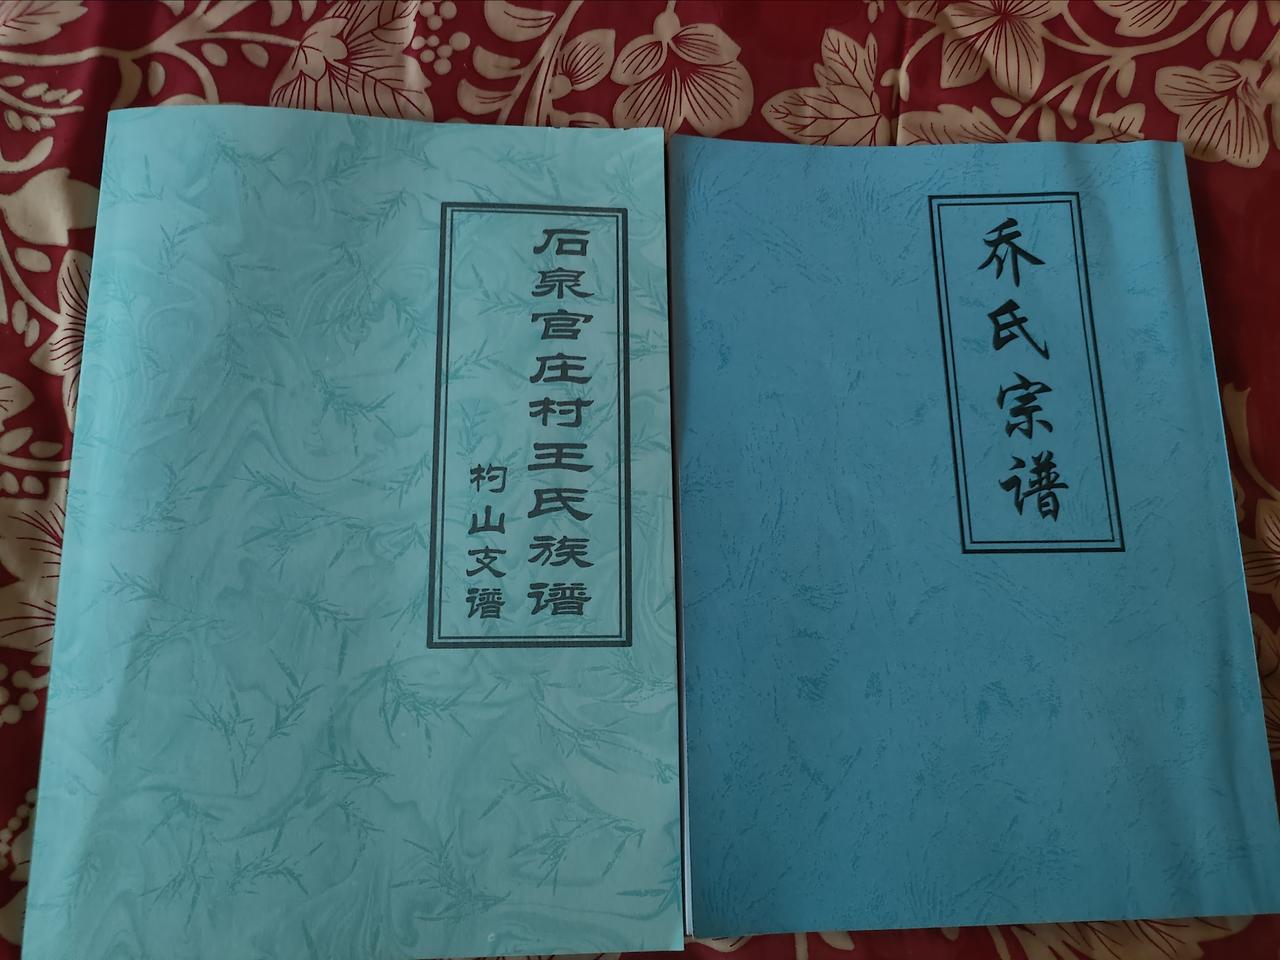 石泉官庄村王氏族谱
杓山支谱
乔氏宗谱